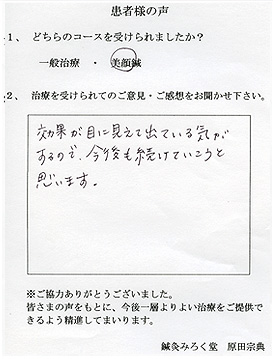 患者様の声
1、 どちらのコースを受けられましたか？
一般治療 ・ 美顔鍼
2、 治療を受けられてのご意見・ご感想をお聞かせ下さい。
効果が目に見えて出ている気が
するので、今後も続けていこうと
思います。
※ご協力ありがとうございました。
皆さまの声をもとに、今後一層よりよい治療をご提供で
きるよう精進してまいります。
鍼灸みろく堂 原田宗典